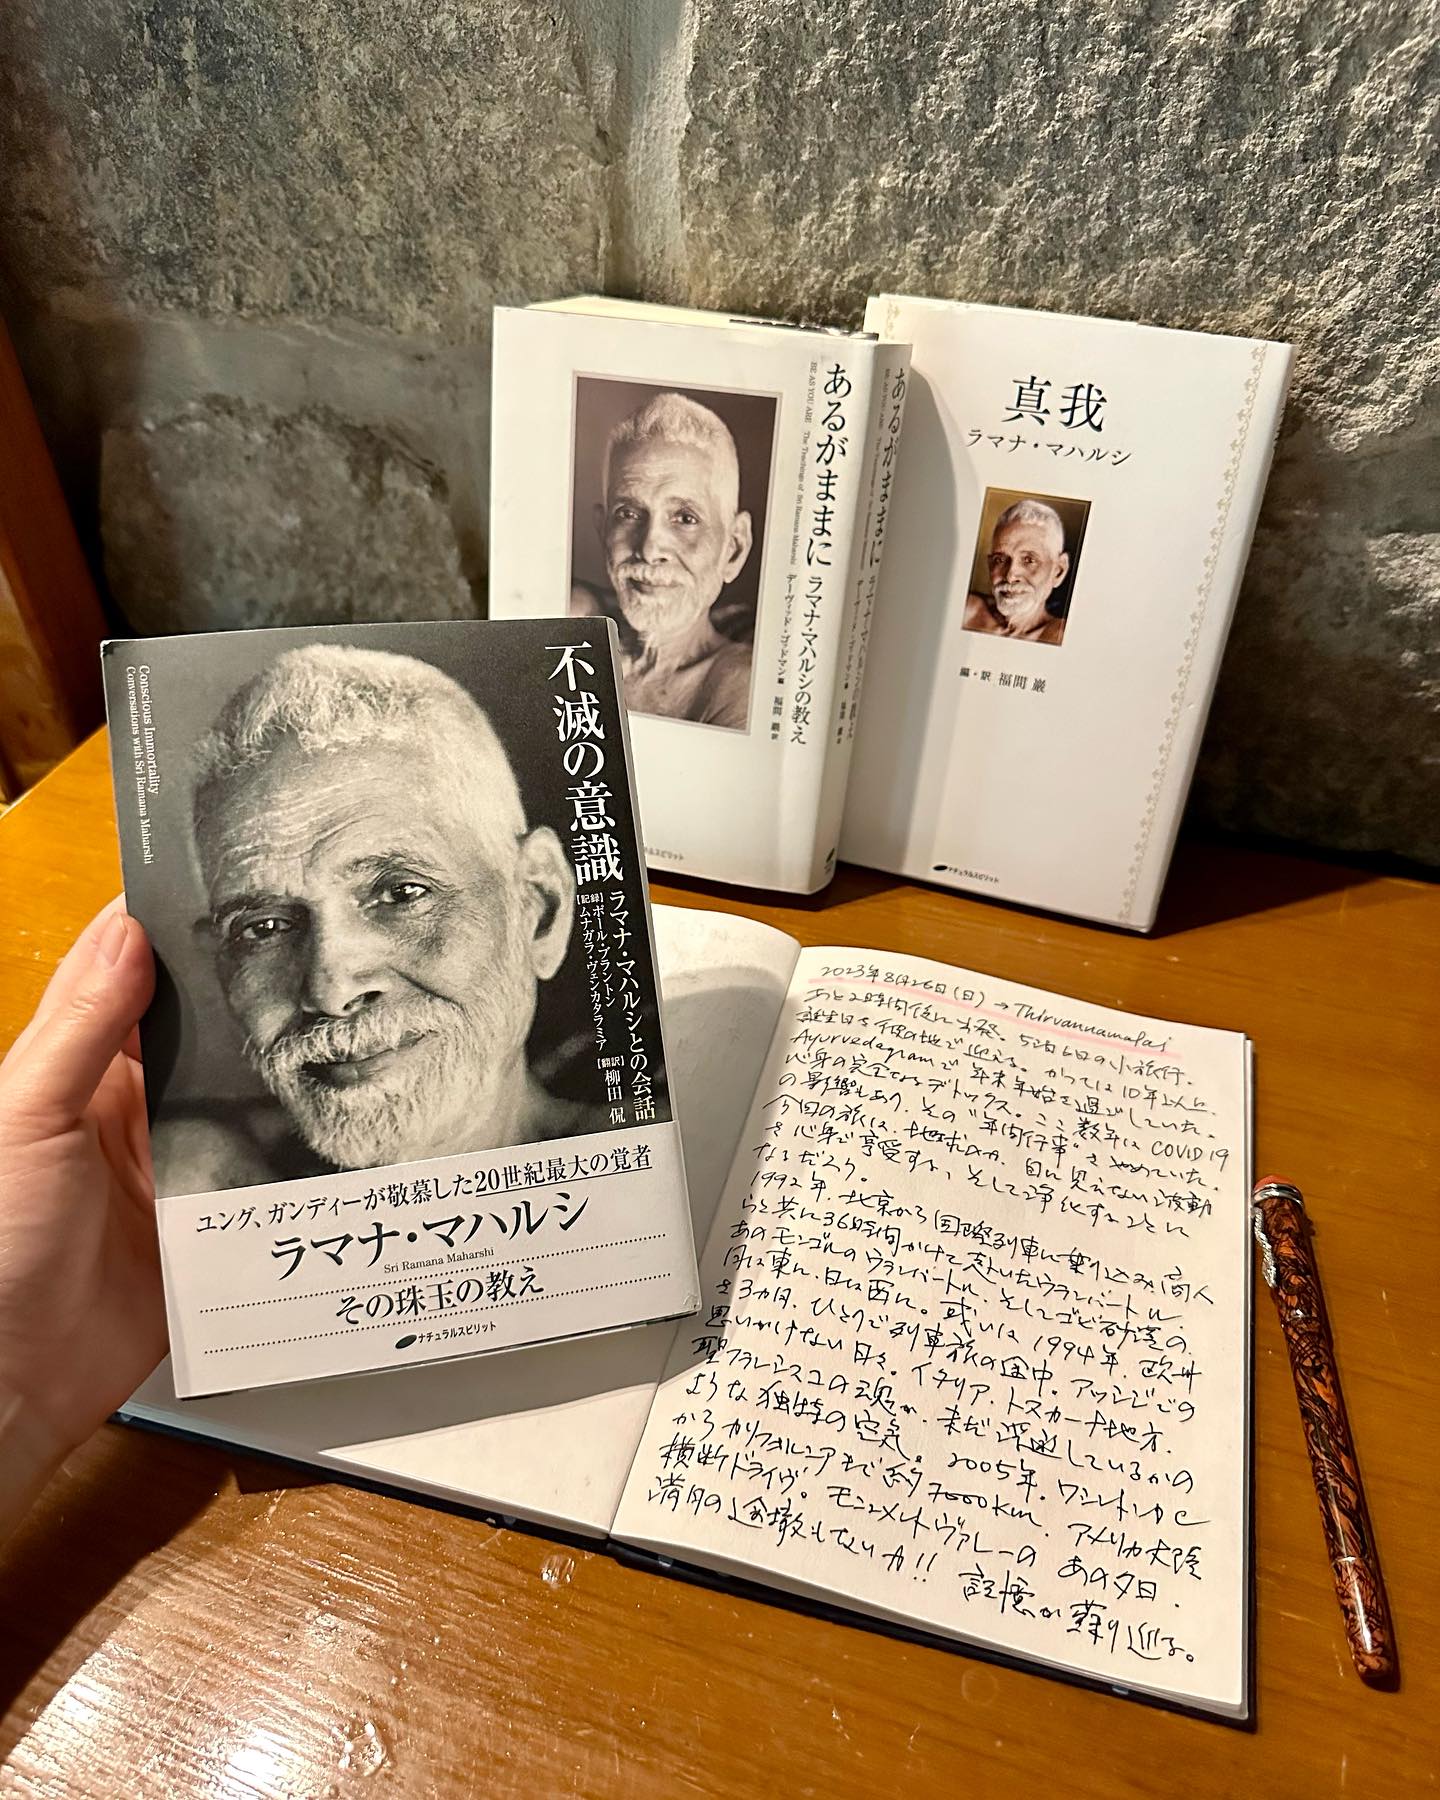 あるがままに
BE AS YOU ARE The Teachings of Sri Ramana Maharshi
ラマナ・マハルシの教え
デーヴィッド・ゴッドマン 編
福間 巖 訳
あるがままに
BE AS YOU ARE
ナチュラルスピリット
真我
ラマナ・マハルシ
編・訳 福間 巖
ナチュラルスピリット
不滅の意識
ラマナ・マハルシとの会話
【記録】ポール・ブラントン
ムナガラ・ヴェンカタラミア
【翻訳】柳田 侃
Conscious Immortality
Conversations with Sri Ramana Maharshi
ユング、ガンディーが敬慕した20世紀最大の覚者
ラマナ・マハルシ
Sri Ramana Maharshi
その珠玉の教え
ナチュラルスピリット
2023年8月26日(日) → Thirvannamalai
あと2時間後に出発。5泊6日の小旅行。
誕生日を彼の地で迎える。かつては10年以上、
Ayurvedagramで年末年始を過ごしていた。
心身の完全なるデトックス。ここ数年はCOVID19
の影響もあり、その"年間行事"をやめていた。
今回の旅は、地球の、目に見えない波動
を心身で享受すること、そして浄化することに
なるだろう。
1992年、北京から国際列車に乗り込み、商人
らと共に36時間かけて着いたウランバートル。
あのモンゴルのウランバートル、そしてゴビ砂漠の、
月は東に、日は西に。或いは1994年、欧州
を3カ月、ひとりで列車旅の途中。アッシジでの
思いがけない日々。イタリア、トスカーナ地方、
聖フランシスコの魂が、未だ浮遊しているかの
ような独特の空気。2005年、ワシントンDC
からカリフォルニアまで約7000km、アメリカ大陸
横断ドライヴ。モニュメントヴァレーのあの夕日、
満月の
記憶が蘇り巡る。